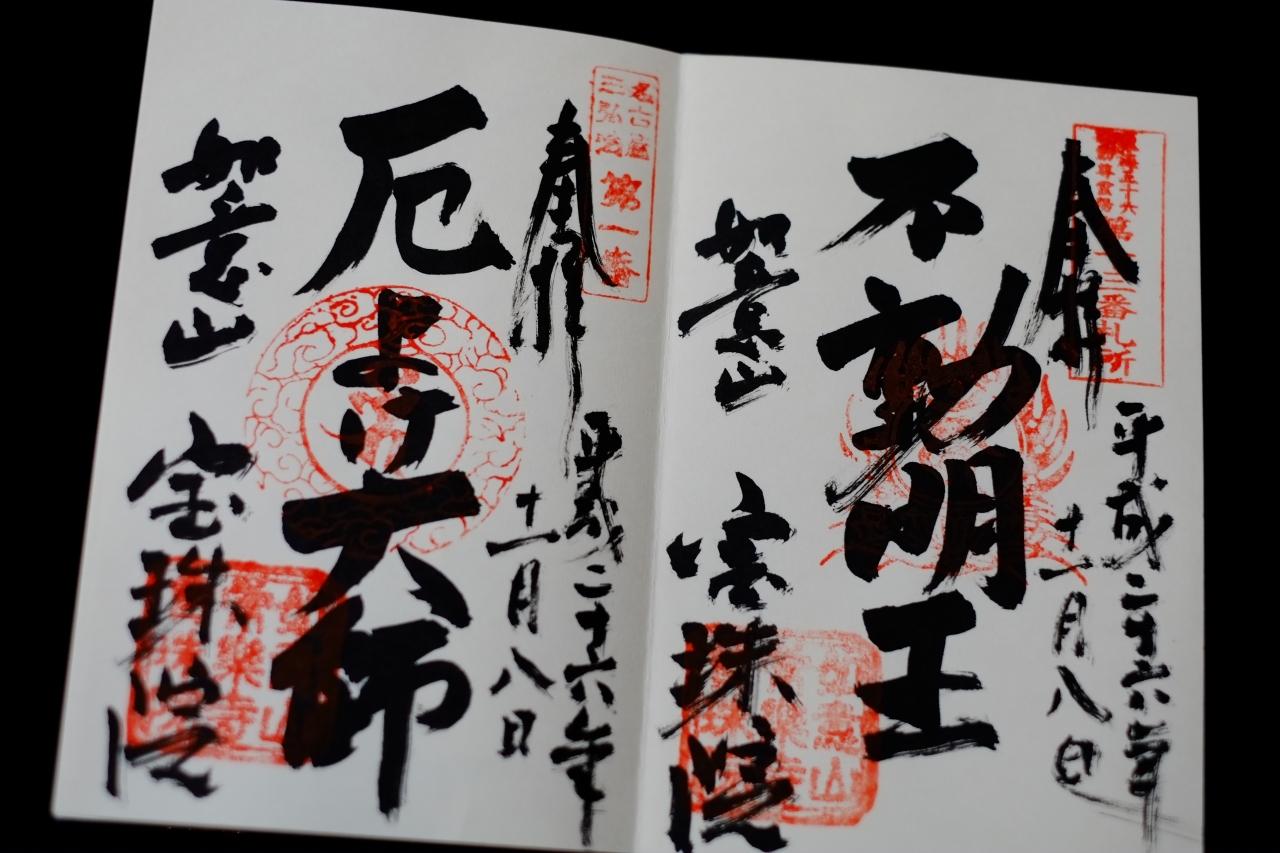 奉拝
平成二十六年
十一月八日
不動明王
如意山
宝珠院
第二番札所
名古屋
三弘法
第一番
奉拝
平成二十六年
十一月八日
厄よけ大師
如意山
宝珠院